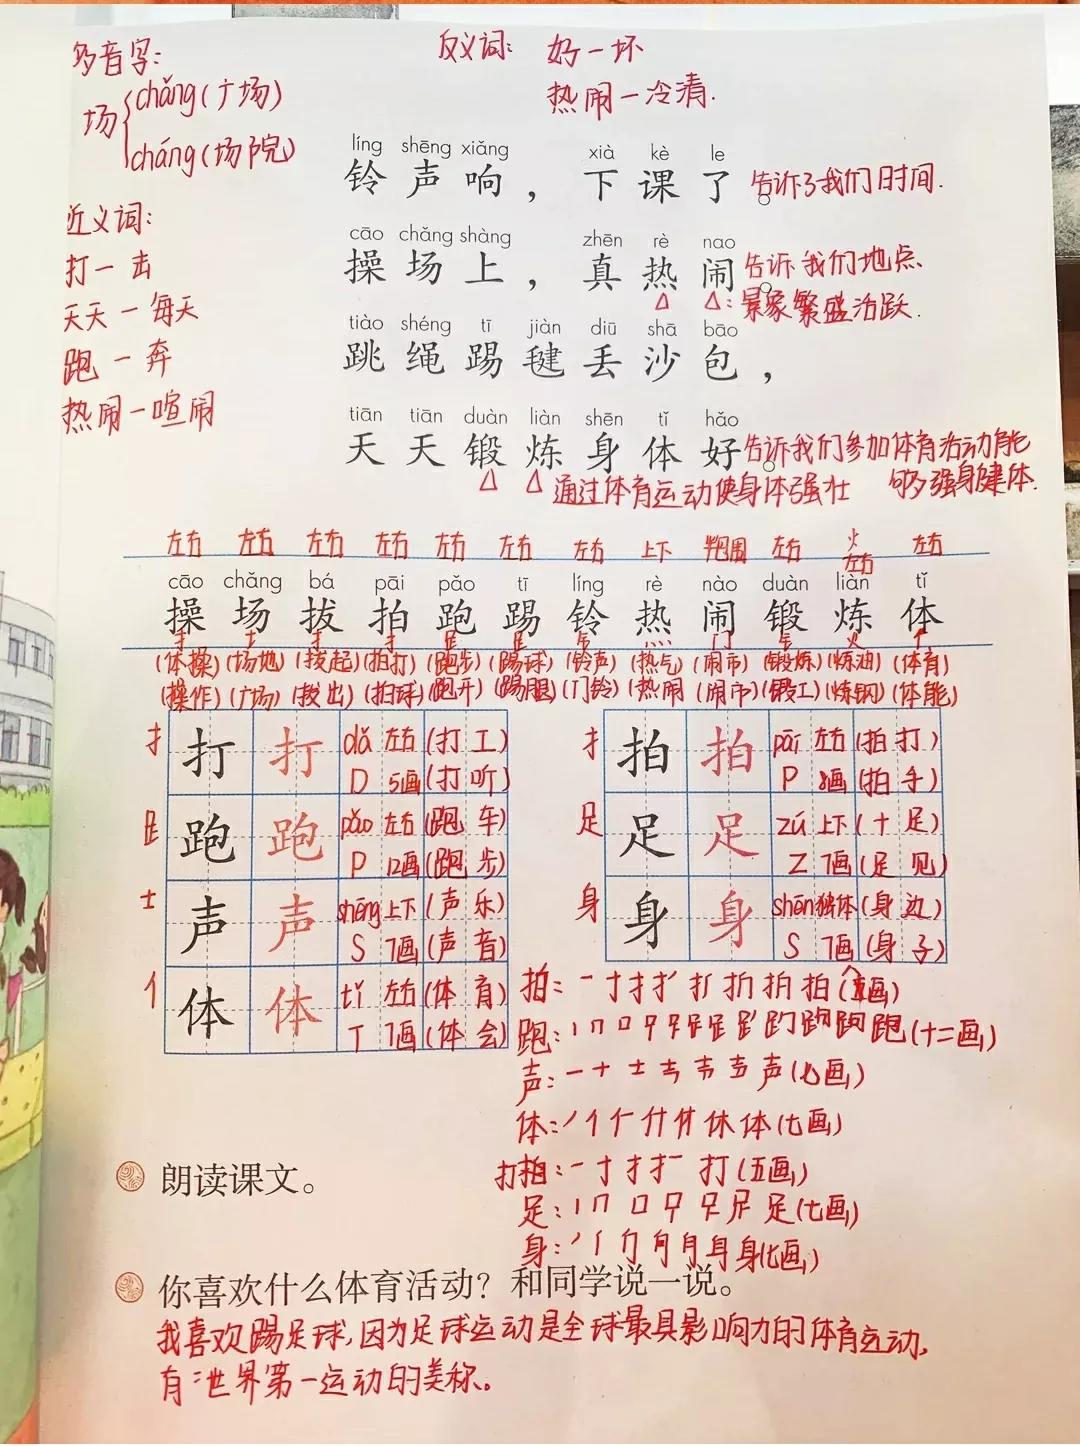 多音字：
场{chǎng(广场)
cháng(场院)
反义词：好一坏
热闹一冷清.
近义词：
打一击
天天一每天
跑一奔
热闹一喧闹
líng shēng xiǎng xià kè le
铃声响，下课了 告诉了我们时间.
cāo chǎng shàng zhēn rè nao
操场上，真热闹。告诉我们地点.
△ △：景象繁盛活跃.
tiào shéng tī jiàn diū shā bāo
跳绳踢毽丢沙包，
tiān tiān duàn liàn shēn tǐ hǎo
天天锻炼身体好。告诉我们参加体育活动能
△ △ 通过体育运动使身体强壮 够强身健体.
左右 左右 左右 左右 左右 左右 左右 上下 半包围 左右 火左右 左右
cāo chǎng bá pāi pǎo tī líng rè nào duàn liàn tǐ
操场拔拍跑踢铃热闹锻炼体
扌 土 扌 扌 ⻊ ⻊ 钅 灬 门 钅 火 亻
(体操)(场地)(拔起)(拍打)(跑步)(踢球)(铃声)(热气)(闹市)(锻炼)(炼油)(体育)
(操作)(广场)(拔出)(拍球)(跑开)(踢腿)(门铃)(热闹)(闹市)(锻工)(炼钢)(体能)
扌 打 打 dǎ 左右 (打工)
D 5画 (打听)
⻊ 跑 跑 pǎo 左右 (跑车)
P 12画 (跑步)
士 声 声 shēng 上下 (声乐)
S 7画 (声音)
亻 体 体 tǐ 左右 (体育)
T 7画 (体会)
扌 拍 拍 pāi 左右 (拍打)
P 8画 (拍手)
足 足 足 zú 上下 (十足)
Z 7画 (足见)
身 身 身 shēn 独体 (身边)
S 7画 (身子)
拍：一 十 扌 扌 扩 折 拍 拍
跑：丨 口 口 (十二画)
声：一 十 士 声(七画)
体：丿 亻 仁 什 休 体(七画)
打：一 十 扌 打(五画)
足：丨 口 口 足(七画)
身：丿 身(七画)
朗读课文。
你喜欢什么体育活动？和同学说一说。
我喜欢踢足球，因为足球运动是全球最具影响力的体育运动，
有“世界第一运动的美称。